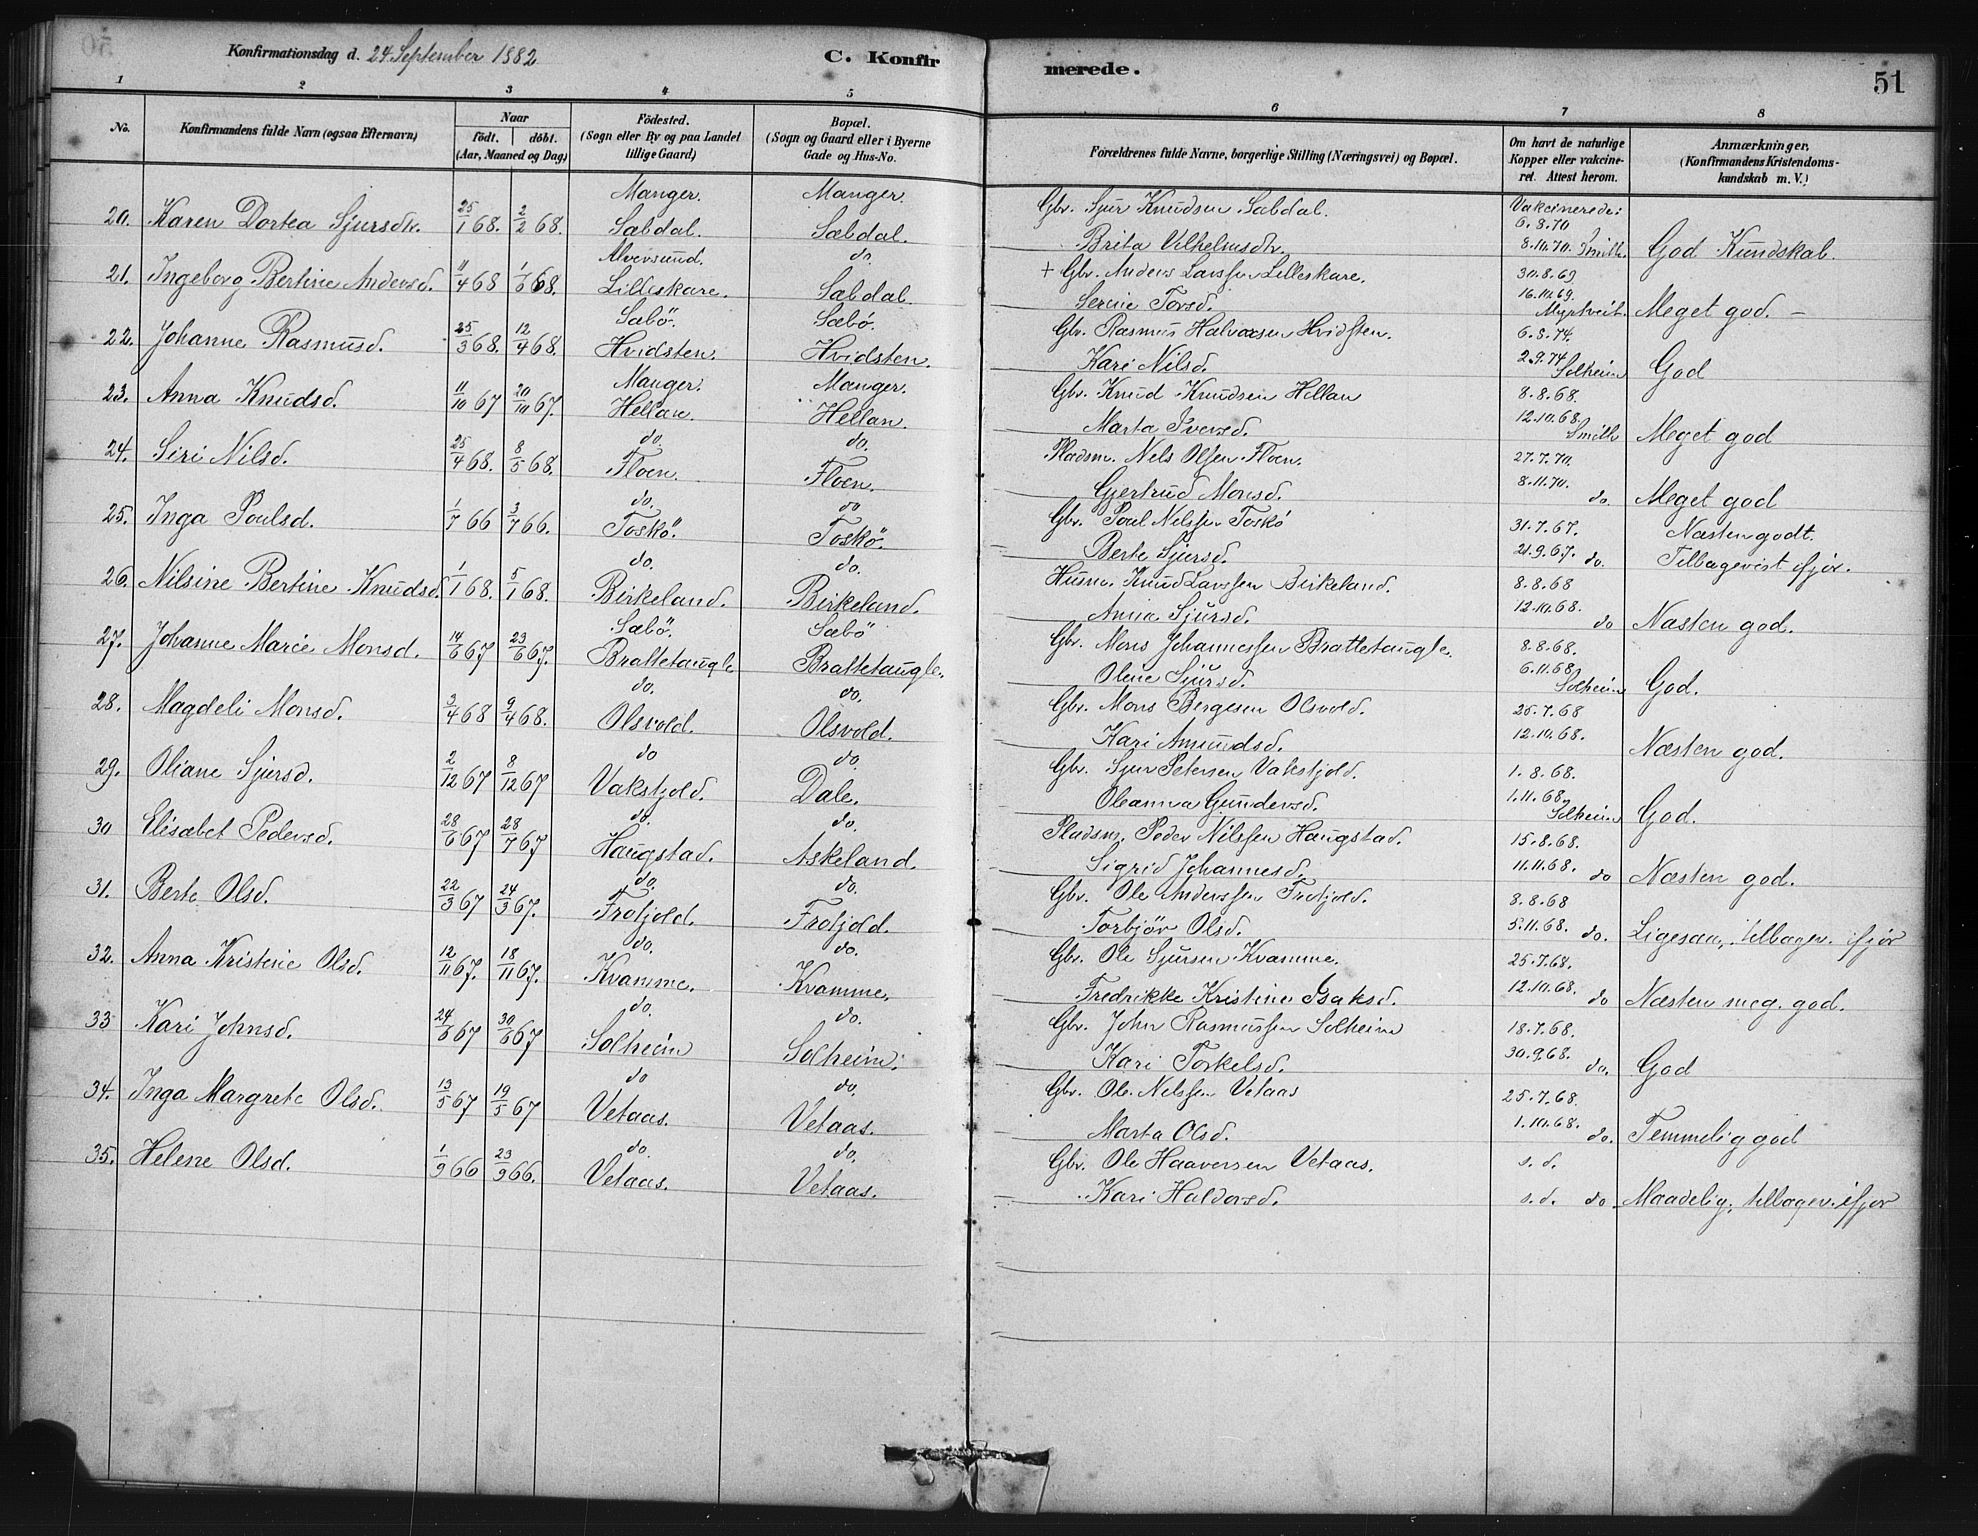 Konfirmationsdag d. 24. September 1882
C. Konfirmerede.
51
1 2 3 4 5 6 7 8
No.
Konfirmandens fulde Navn (ogsaa Efternavn)
Naar
födt. döbt.
(Aar, Maaned og Dag)
Födested.
(Sogn eller By og paa Landet
tillige Gaard)
Bopæl.
(Sogn og Gaard eller i Byerne
Gade og Hus-No.
Forældrenes fulde Navne, borgerlige Stilling (Næringsvei) og Bopæl.
Om havt de naturlige
Kopper eller vakcine-
ret. Attest herom.
Anmærkninger,
(Konfirmandens Kristendoms-
kundskab m. V.)
Manger. Manger. Gbr. Sjur Knudsen Sabdal. Vakcinerede:
20. Karen Dortea Sjursdtr. 25/1 68. 2/2 68. Sabdal. Sæbdal. 6.8.70
Brita Vilhelmsdtr. 8.10.70. Smith. God Kundskab.
Alversund. do. + Gbr. Anders Larssen Lilleskare. 30.8.69
21. Ingeborg Bertine Andersd. 11/4 68 1/6 68. Lilleskare. Sabdal.
Serine Torsd. 16.10.69. Myrtveit. Meget god. –
Sæbö. Sæbö. Gbr. Rasmus Halvorsen Hvidsten. 6.8.74.
22. Johanne Rasmusd. 25/3 68. 12/4 68. Hvidsten. Hvidsten.
Kari Nilsd. 2.9.74 Solheim God
Manger. Manger. Gbr. Knud Knudsen Hellan 8.8.68.
23. Anna Knudsd. 11/10 67 20/10 67. Hellan. Hellan.
Marta Iversd. 12.10.68. Smith Meget god
do. do. Pladsm. Nels Olsen Floen. 27.7.70.
24. Siri Nilsd. 25/4 68. 8/5 68. Floen. Floen.
Gjertrud Monsd. 8.11.70. do. Meget god
do. do Gbr. Poul Nelssen Toskö 31.7.67. Næsten godt.
25. Inga Poulsd. 1/7 66 3/7 66. Toskö. Toskö.
Berte Sjursd. 21.9.67. do. Tilbagevist ifjor.
do. do. Husm. Knud Larssen Birkeland. 8.8.68
26. Nilsine Bertine Knudsd. 1/1 68. 5/1 68. Birkeland. Birkeland.
Anna Sjursd. 12.10.68. do Næsten god.
Sæbö. Sæbö Gbr. Mons Johannessen Brattetaugle. 8.8.68.
27. Johanne Marie Monsd. 14/6 67 23/6 67. Brattetaugle Brattetaugle.
Olene Sjursd. 6.11.68. Solheim God.
do. do. Gbr. Mons Bergesen Olsvold. 25.7.68
28. Magdeli Monsd. 3/4 68 9/4 68. Olsvold. Olsvold.
Kari Amundsd. 12.10.68. Næsten god.
do do. Gbr. Sjur Petersen Vaksfjold. 1.8.68.
29. Oliane Sjursd. 2/12 67 8/12 67 Vaksfjold. Dale.
Oleanna Gundersd. 1.11.68. Solheim God.
do. do. Pladsm. Peder Nilssen Haugstad. 15.8.68.
30 Elisabet Pedersd. 28/6 67 28/7 67 Haugstad. Askeland.
Sigrid Johannesd. 11.11.68. do Næsten god.
do. do. Gbr. Ole Anderssen Frofjold. 8.8.68
31. Berte Olsd. 22/3 67 24/3 67. Frofjold. Frofjold.
Torbjör Olsd. 5.11.68. do. Ligesaa, tilbagev. ifjor
do. do. Gbr. Ole Sjursen Kvamme. 25.7.68.
32. Anna Kristine Olsd. 12/11 67. 18/11 67. Kvamme. Kvamme.
Fredrikke Kristine Isaksd. 12.10.68. do Næsten meg. god.
do. do. Gbr. John Rasmussen Solheim 18.7.68.
33 Kari Johnsd. 24/6 67 30/6 67 Solheim Solheim.
Kari Torkelsd. 30.9.68. do. God
do do. Gbr. Ole Nelssen Vetaas 25.7.68.
34. Inga Margrete Olsd. 13/5 67 19/5 67 Vetaas. Vetaas.
Marta Olsd. 1.10.68. do. Temmelig god
do. do. Gbr. Ole Haaversen Vetaas. s.d.
35. Helene Olsd. 1/9 66 23/9 66. Vetaas. Vetaas.
Kari Haldorsd. s.d. do. Maadelig, tilbagev. ifjor